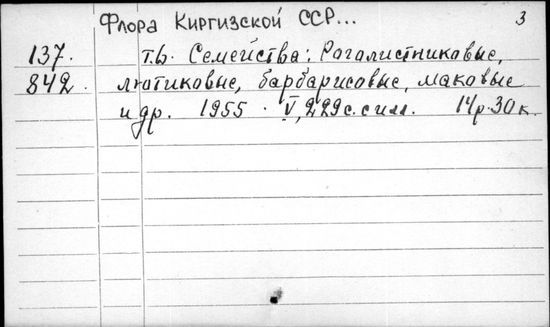 Флора Киргизской ССР... 3
137. т.6. Семейства: Рогалистниковые,
842. лютиковые, барбарисовые, маковые
и др. 1955. V, 229 с. с илл. 14 р. 30 к.